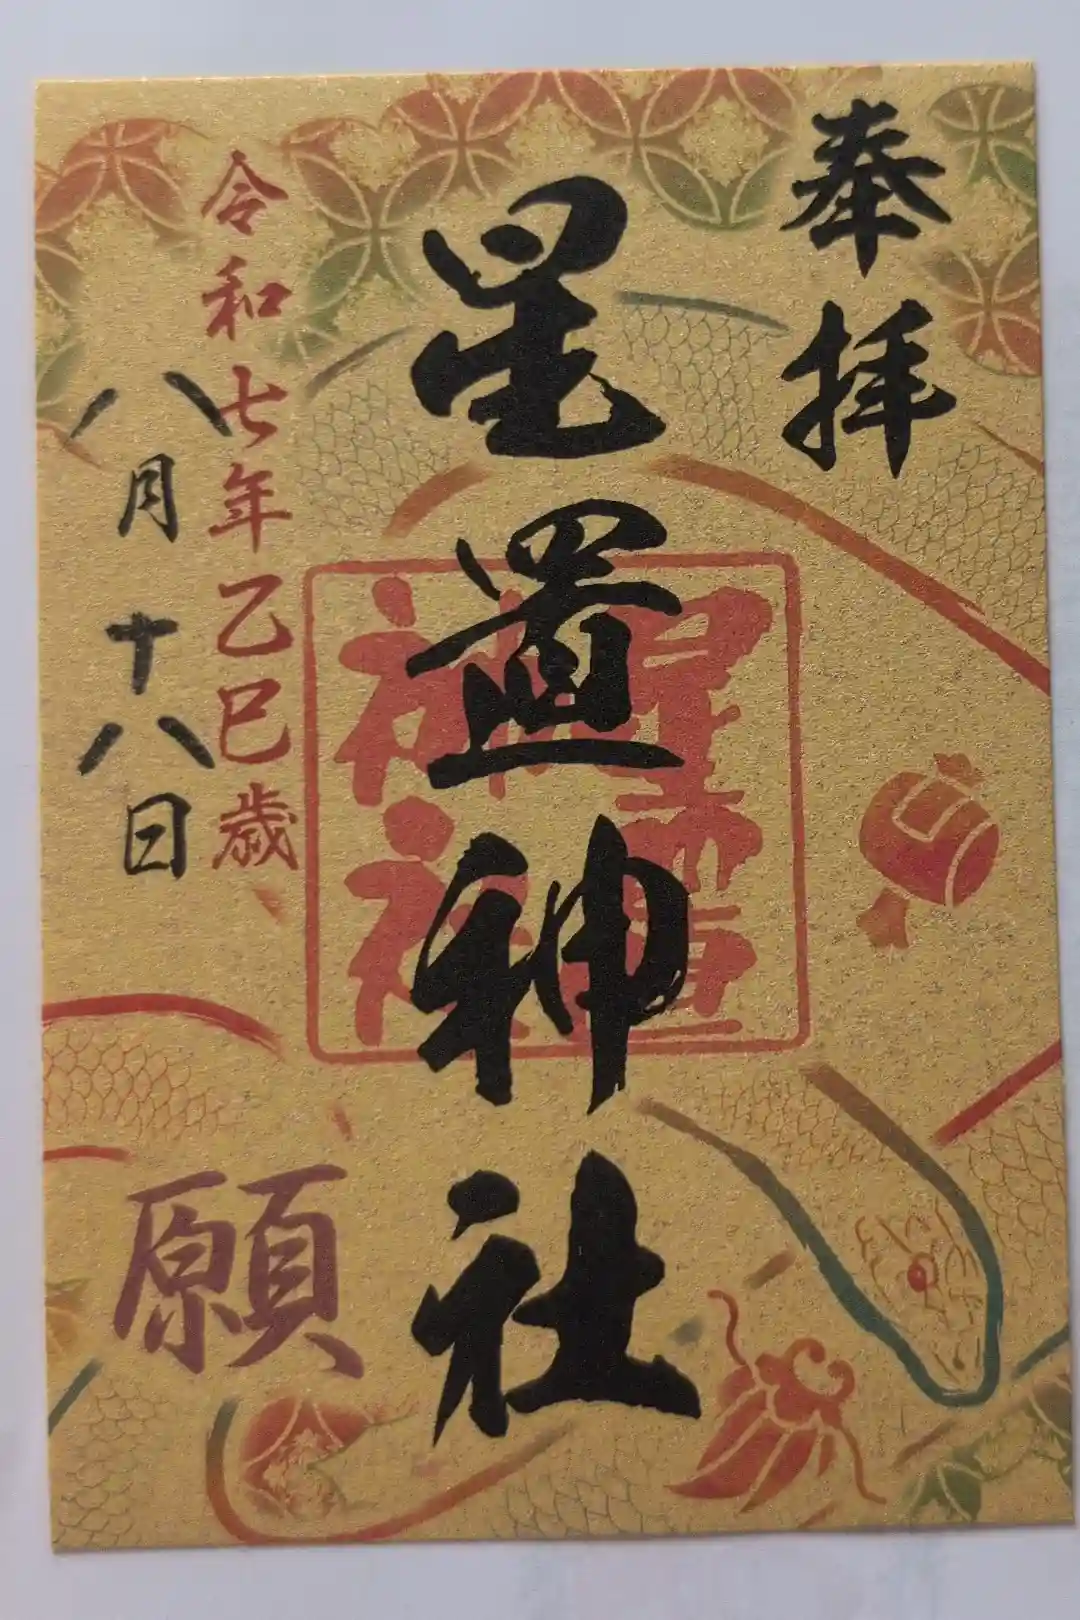 奉拝
星置神社
星置神社
令和七年乙巳歳
八月十八日
願